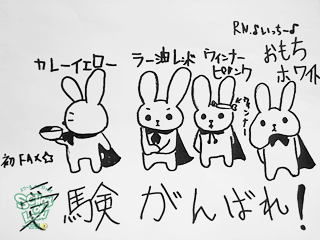 R.N.♪いっちー♪
カレーイエロー
ラー油レッド
ウィンナーピンク
おもちホワイト
ウィンナー
初FAX☆
受験がんばれ！